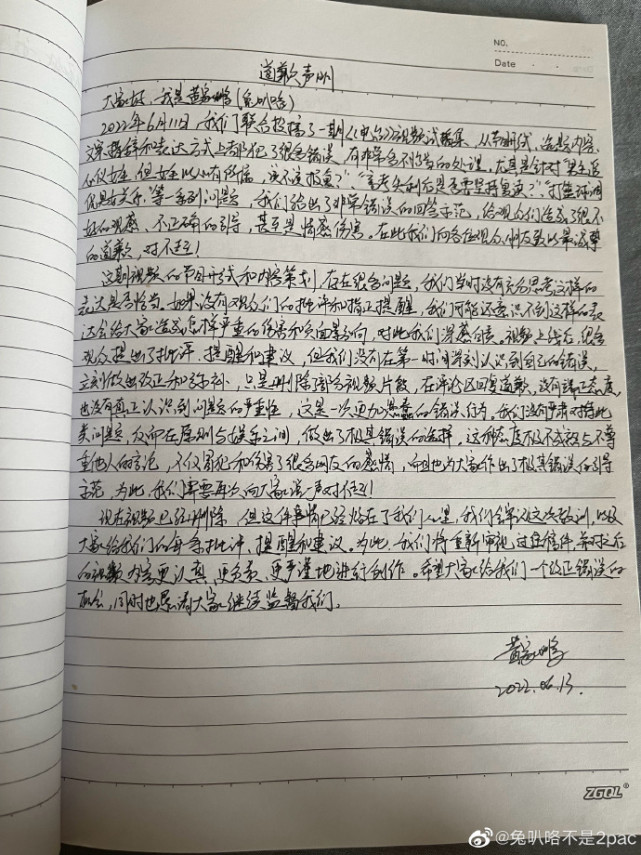 NO.
Date
道歉声明
大家好,我是黄家鹏(兔叭咯)
2022年6月11日,我们联合投稿了一期《电台》视频试播集,从节目形式、选题内容、
文案措辞和表达方式上都犯了很多错误,有非常多不恰当的处理。尤其是针对“男主
仪女主,但女主以
”“高考失利后是否需要
等一系列问题,我们给出了非常错误的回答示范,给观众们造成了很不
好的观感、不正确的引导,甚至是情感伤害。在此我们向各位观众朋友致以最诚挚
的道歉,对不起!
这期视频的节目形式和内容策划,存在很多问题,我们当时没有充分思考这样的
表达是否恰当。如果没有观众们的批评和指正提醒,我们可能还意识不到这样的表
达会给大家造成怎样严重的伤害和负面影响,对此我们深感自责。视频上线后,很多
观众提出了批评、提醒和建议,但我们没有在第一时间深刻认识到自己的错误,
立刻做出改正和弥补,只是删除部分视频片段,在评论区回复道歉,没有端正态度,
也没有真正认识到问题的严重性,这是一次更加愚蠢的错误行为,我们没有严肃对待此
类问题,反而在原则与娱乐之间,做出了极其错误的选择。这种态度极不成熟与不尊
重他人的言论,不仅冒犯和伤害了很多网友的感情,而且也为大家作出了极其错误的引导
示范,为此,我们需要再次向大家说一声对不起!
现在视频已经删除,但这件事情已经烙在了我们心里,我们会牢记这次教训,以及
大家给我们的每条批评、提醒和建议。为此,我们将重新审视过往稿件,并对以后
的视频内容更认真、更负责、更严谨地进行创作。希望大家给我们一个改正错误的
机会,同时也恳请大家继续监督我们。
黄家鹏
2022.06.13.
ZGOL®
@兔叭咯不是2pac